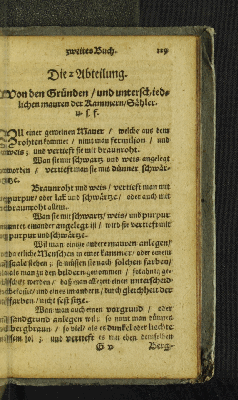 zweites Buch. 119
Die 2 Abteilung.
Von den Gründen / und unterschied-
lichen mauren der Kammern / Sähler
u. s. f.
einer gemeinen Mauer / welche aus dem
rohten kommet / nimt man fermilion / und
weis; und vertieft sie mit braunroht.
Wan sie mit schwartz und weis angelegt
worden / vertieft man sie mit dünner schwär-
tze.
Braunroht und weis / vertieft man mit
purpur / oder lak und schwärtze / oder auch mit
braunroht allein.
Wan sie mit schwartz / weis / und purpur
unter einander angelegt ist / wird sie vertieft mit
purpur und schwärtze.
Wil man einige andere mauren anlegen /
Menschen in einer kammer / oder einem
stehen; so müssen sie nach solchen farben /
man zu den bildern genommen /
werden / daß man allezeit einen unterscheid
und eines im andern / durch gleichheit der
farben / nicht fest sitze.
Wan man auch einen vorgrund / oder
sandgrund anlegen wil; so nimt man dünnes
bergbraun / so viel / als es dunkel oder liechte
sein sol; und vertieft es mit eben demselben
G v Berg-